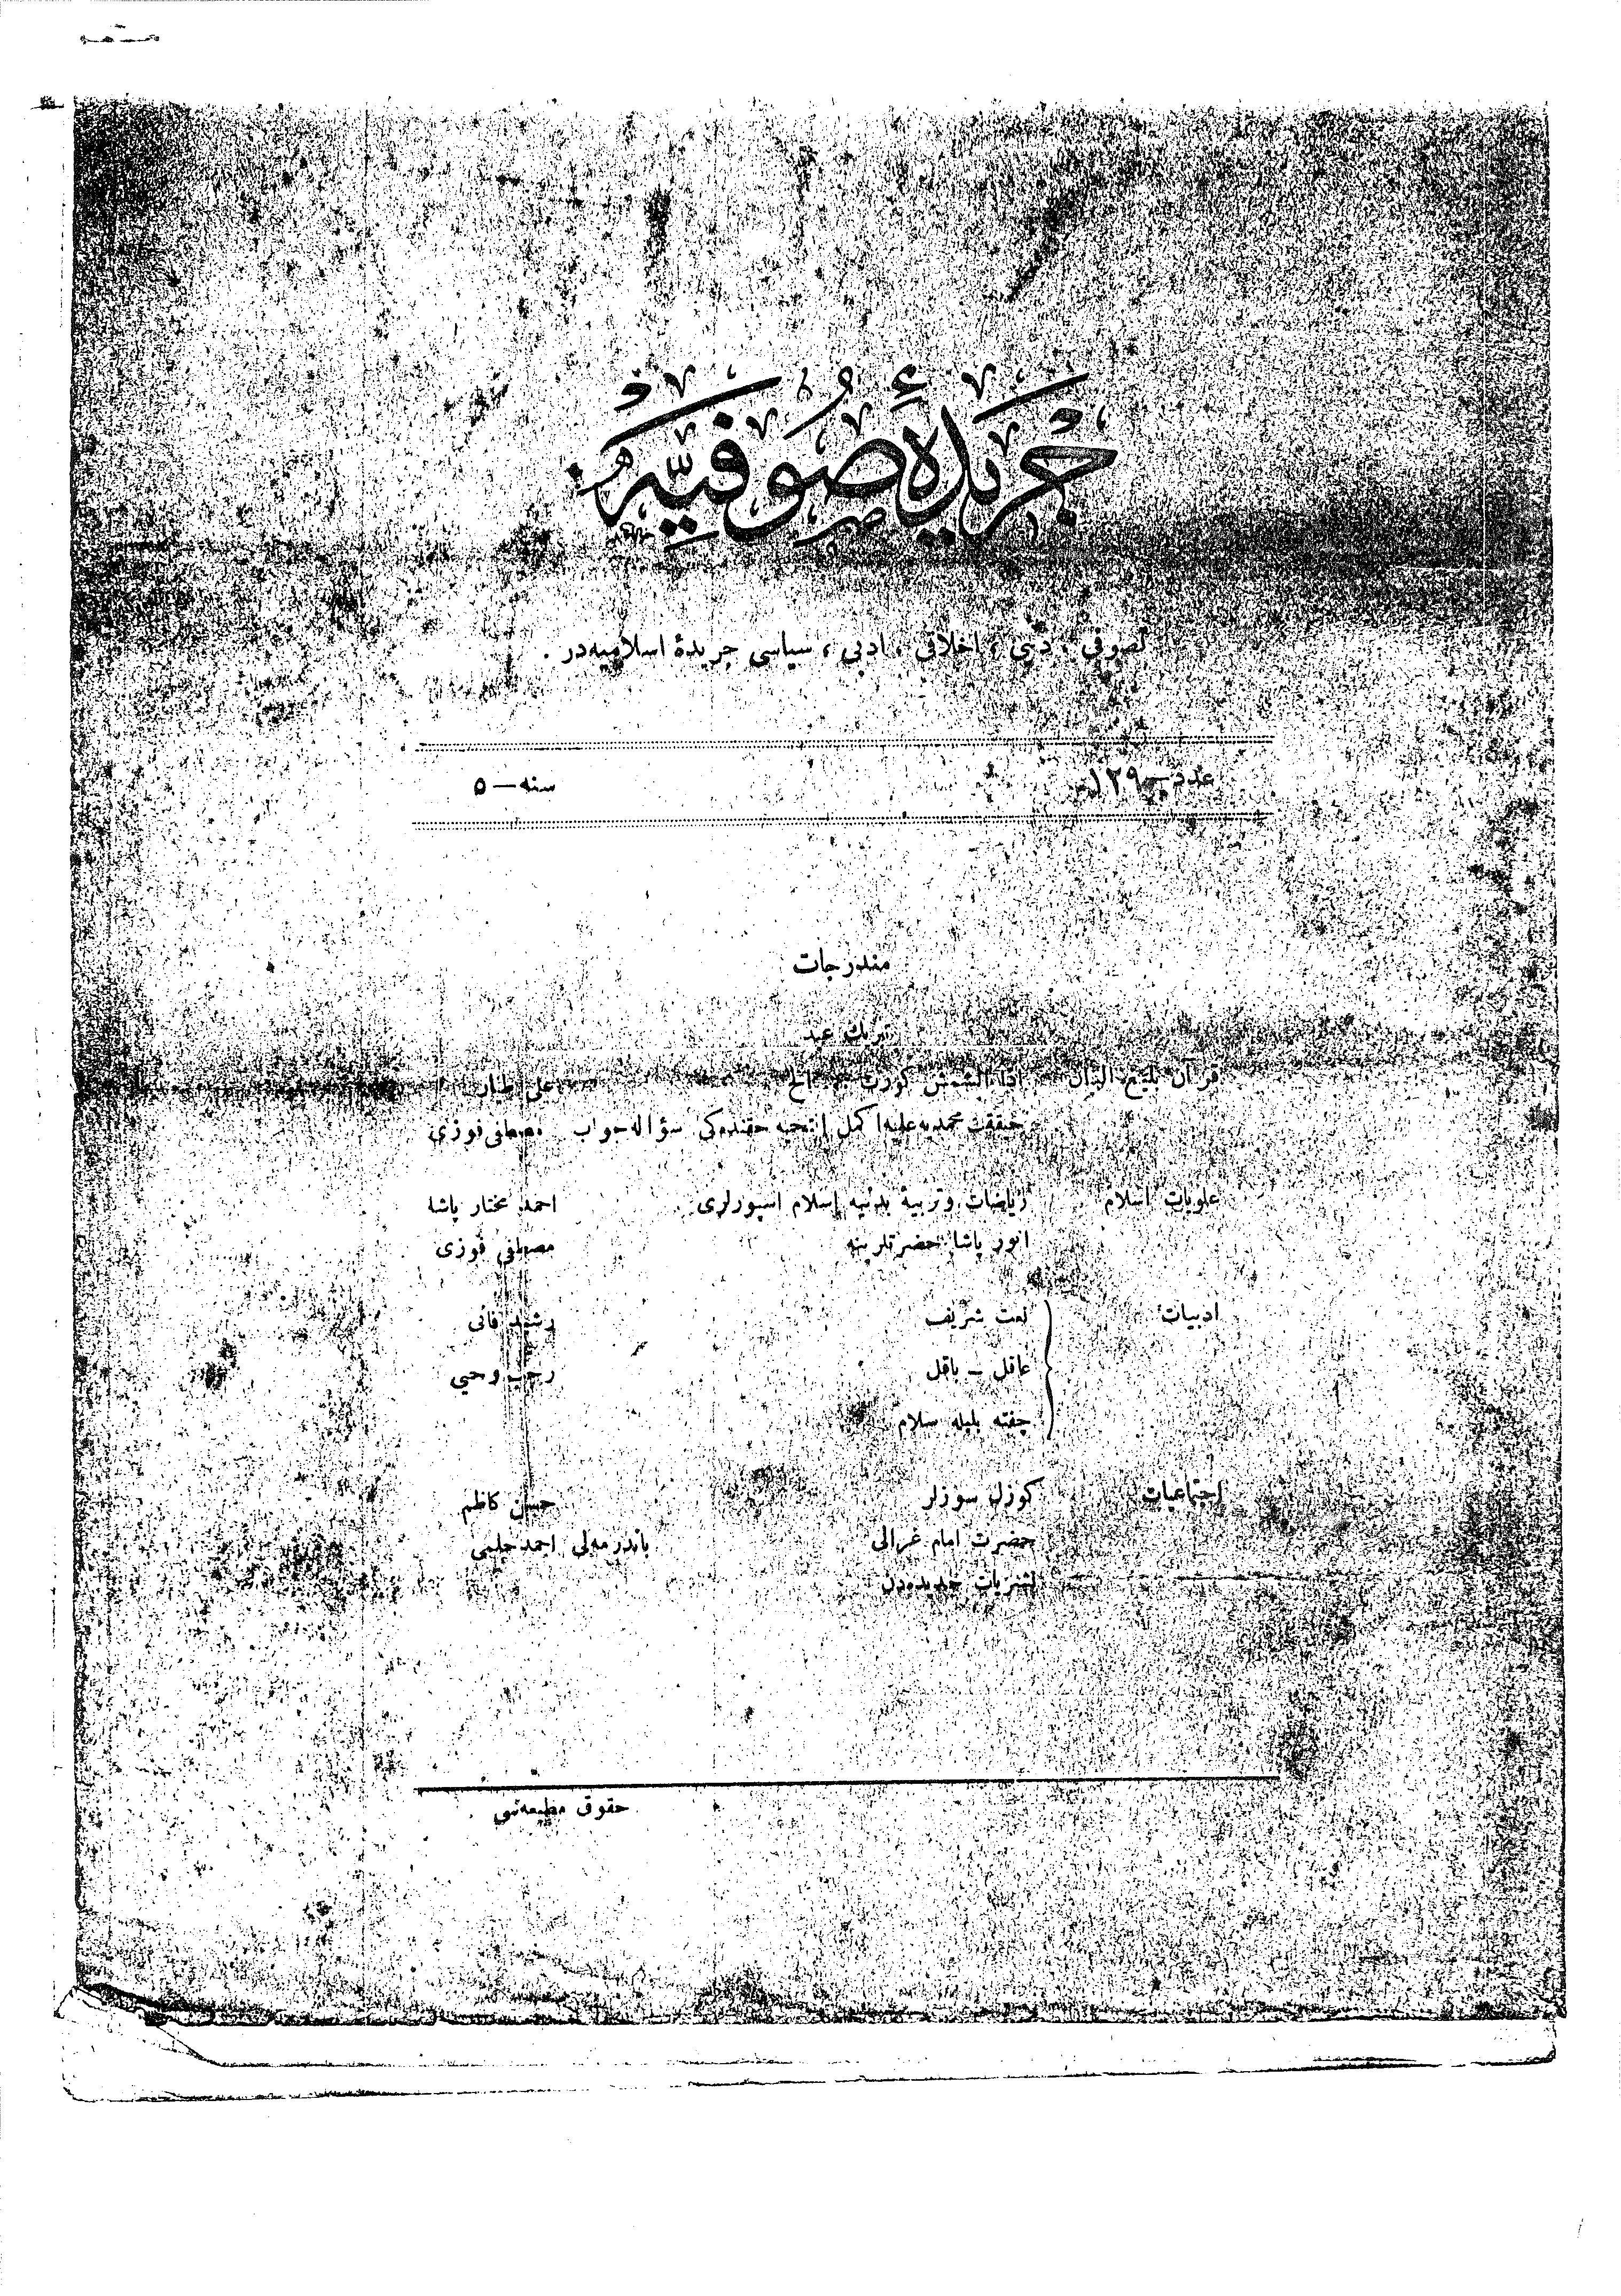 جريدهٔ صوفيه
تصوفی ، دينی ، اخلاقی ، ادبی ، سياسی جريدهٔ اسلاميه‌در .
عدد — ١٢٩ سنه — ٥
مندرجات
تبريك عيد
قرآن بليغ البيان اذا الشمس كورت الخ علی طيار
حقيقت محمديه عليها اكمل التحيه حقنده‌كی سؤاله جواب مصطفی فوزی
علويات اسلام رياضات و تربيهٔ بدنيه اسلام اسپورلری احمد مختار پاشا
انور پاشا حضرتلرينه مصطفی فوزی
ادبيات نعت شريف رشيد فانی
عاقل — باقل رجب وحيی
جفته بلبله سلام
اجتماعيات كوزل سوزلر حسن كاظم
حضرت امام غزالی باندرمه‌لی احمد حلمی
نشريات جديده‌دن
حقوق مطبعه‌سی